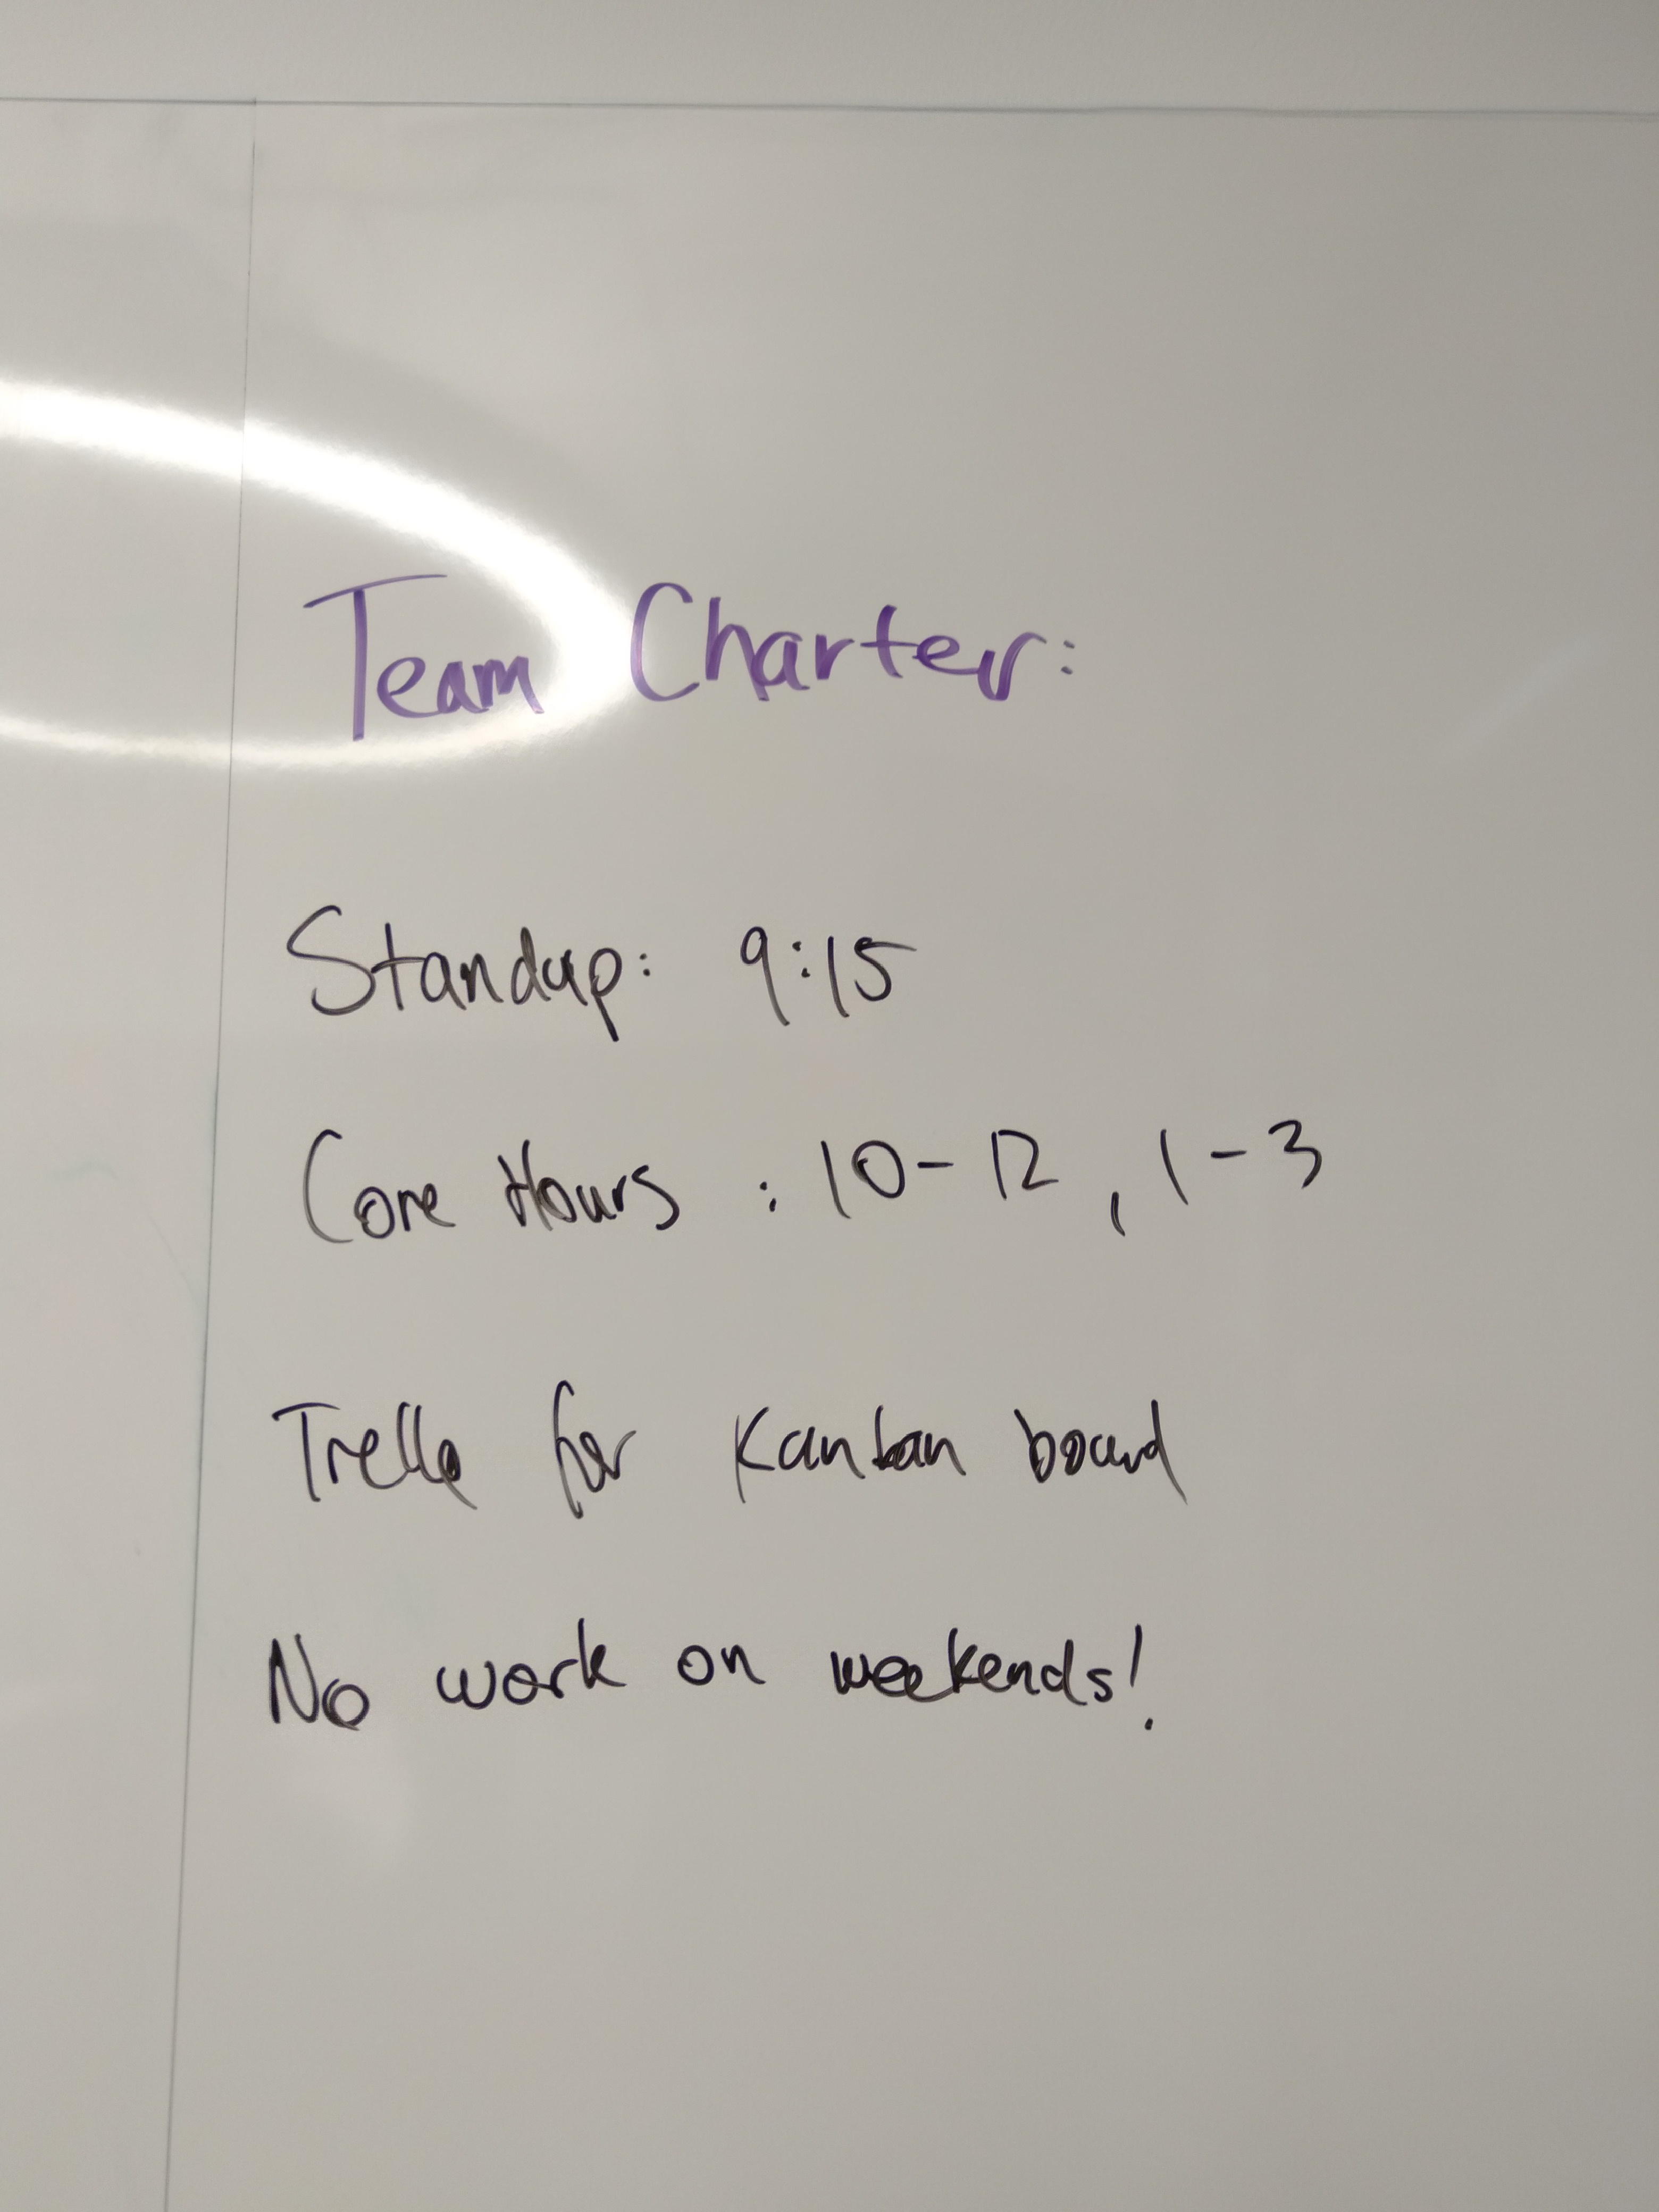 Team Charter:
Standup: 9:15
Core Hours : 10-12 , 1-3
Trello for Kanban board
No work on weekends!